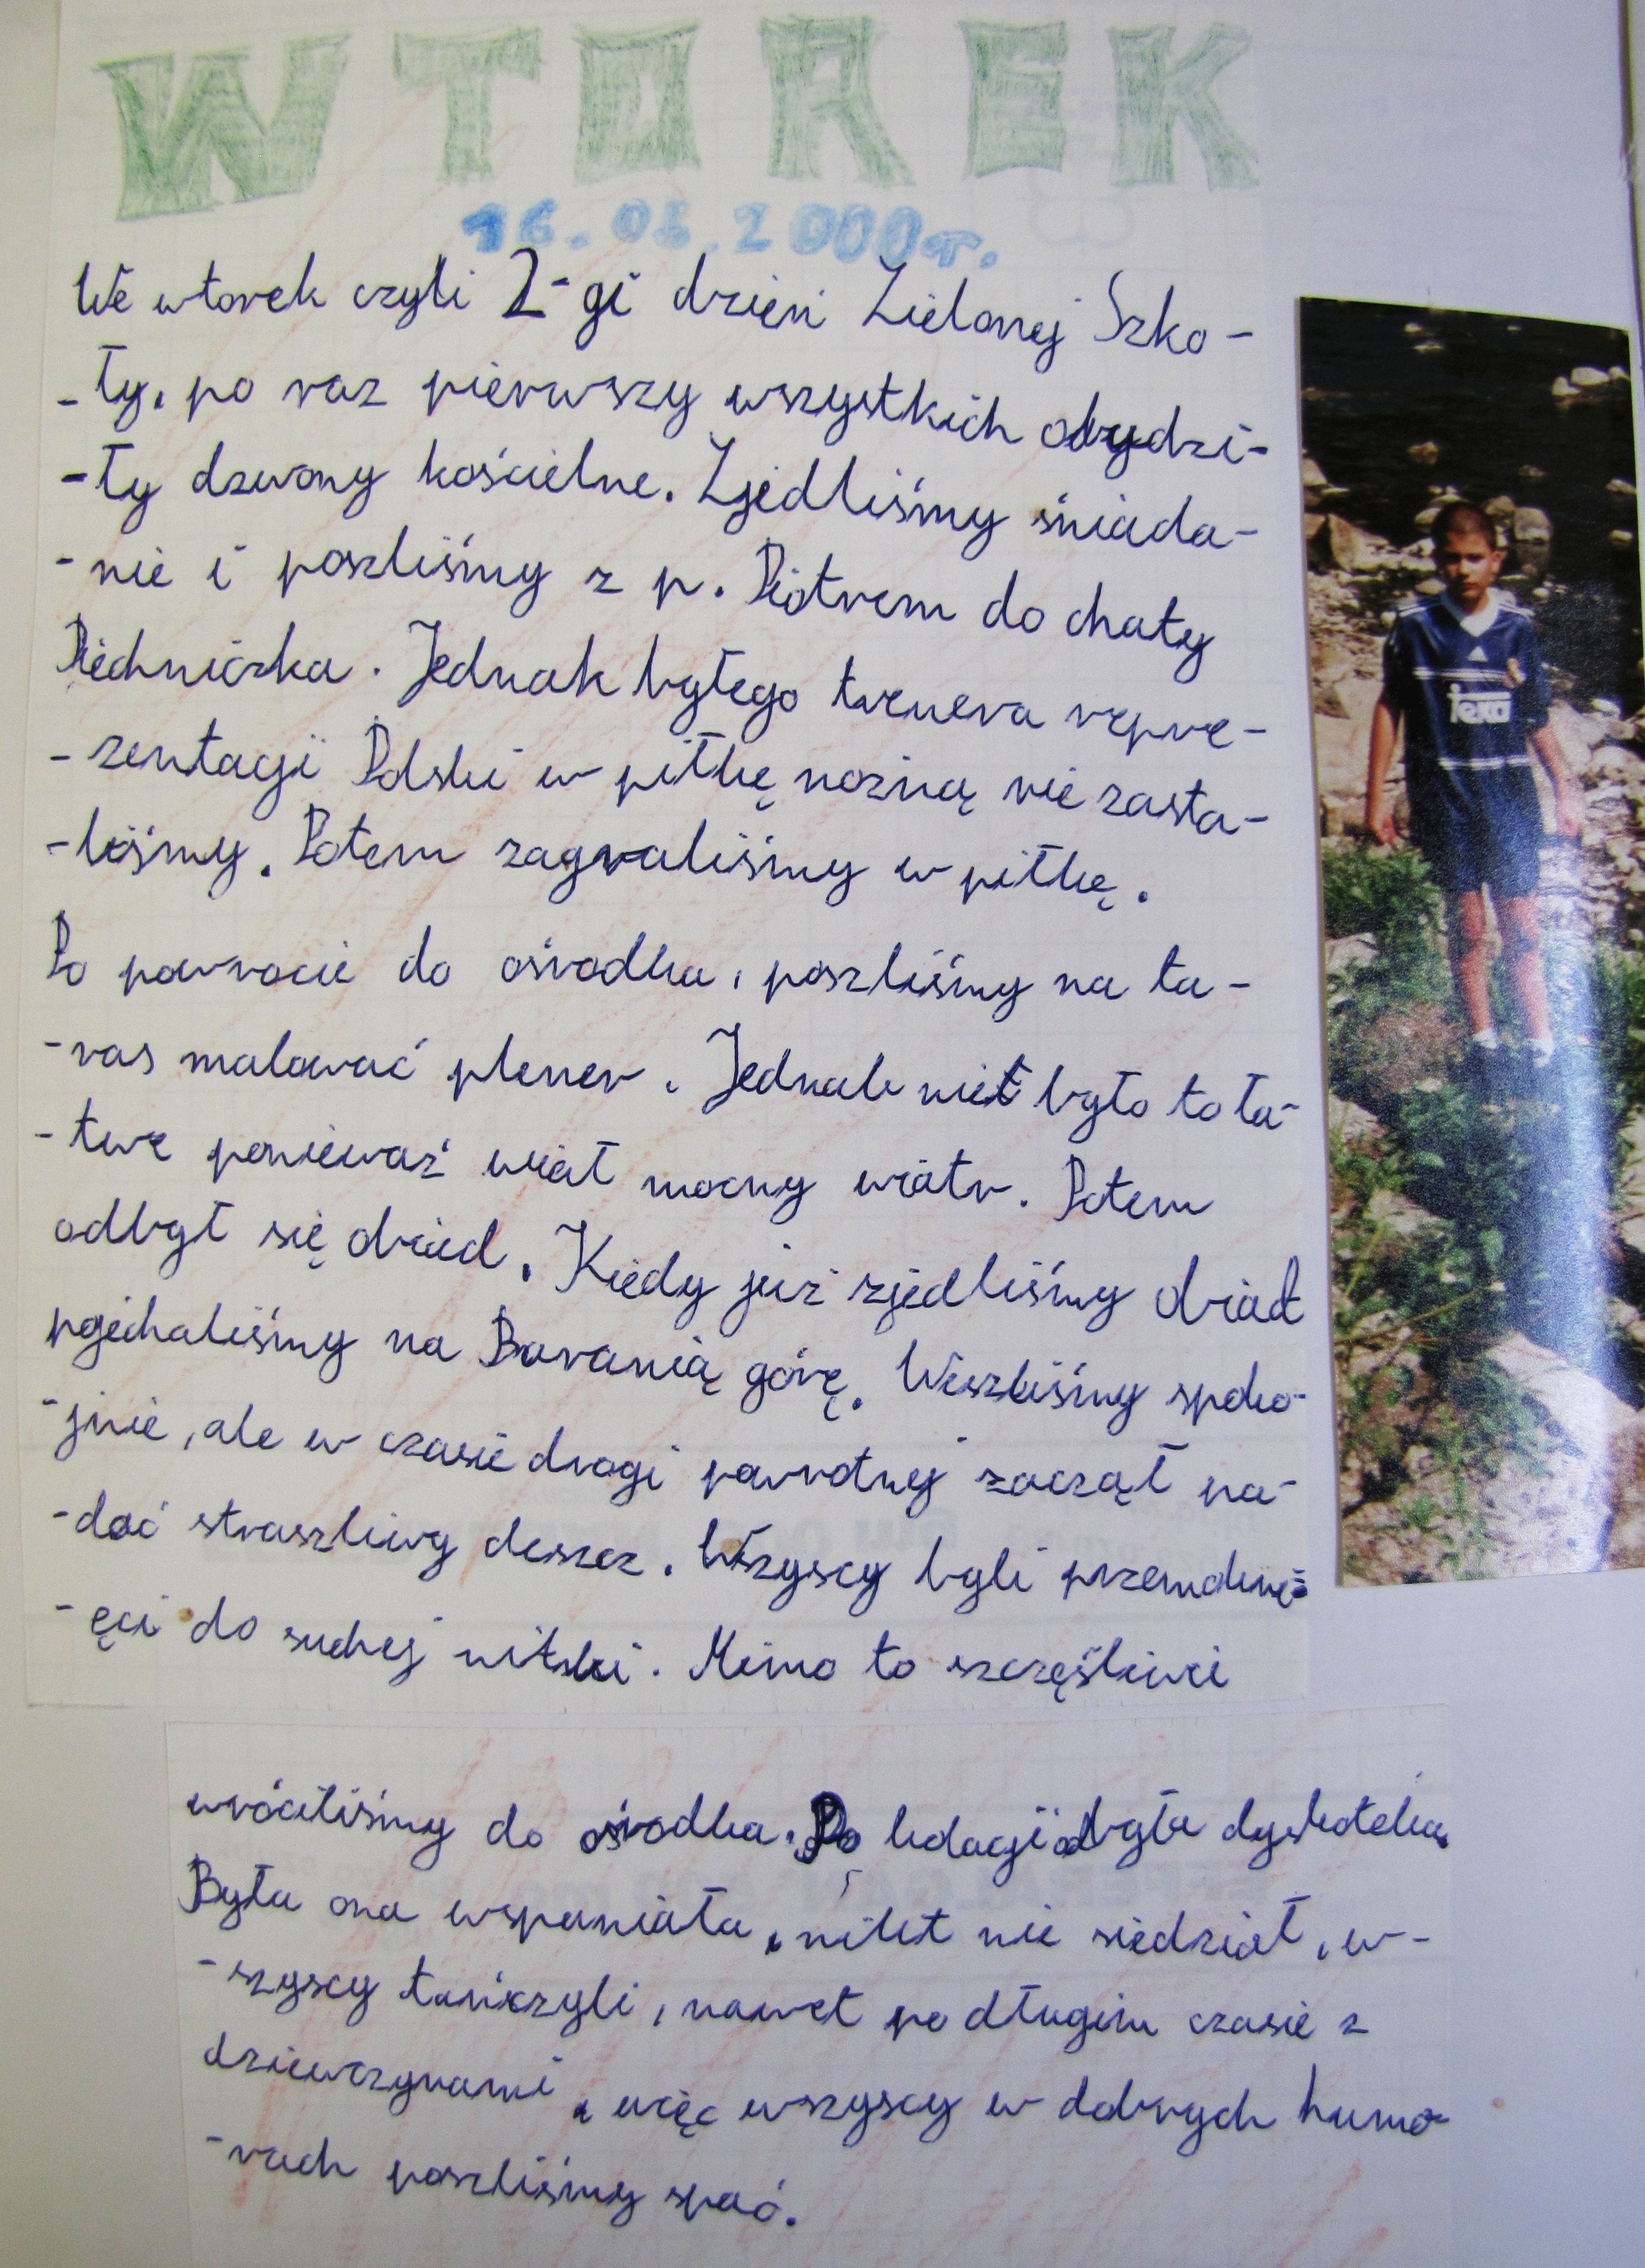 WTOREK
16.05.2000r.
We wtorek czyli 2-gi dzień Zielonej Szko-
-ły, po raz pierwszy wszystkich obudzi-
-ły dzwony kościelne. Zjedliśmy śniada-
-nie i poszliśmy z p. Piotrem do chaty
Piechniczka. Jednak byłego trenera repre-
-zentacji Polski w piłkę nożną nie zasta-
-liśmy. Potem zagraliśmy w piłkę.
Po powrocie do ośrodka, poszliśmy na ta-
-ras malować plener. Jednak nie było to ła-
-twe ponieważ wiał mocny wiatr. Potem
odbył się obiad. Kiedy już zjedliśmy obiad
pojechaliśmy na Baranią górę. Weszliśmy spoko-
-jnie, ale w czasie drogi powrotnej zaczął pa-
-dać straszliwy deszcz. Wszyscy byli przemoknię-
-ęci do suchej nitki. Mimo to szczęśliwi
wróciliśmy do ośrodka. Po kolacji odbyła dyskoteka.
Była ona wspaniała, nikt nie siedział, w-
-szyscy tańczyli, nawet po długim czasie z
dziewczynami, więc wszyscy w dobrych humo-
-rach poszliśmy spać.
teka